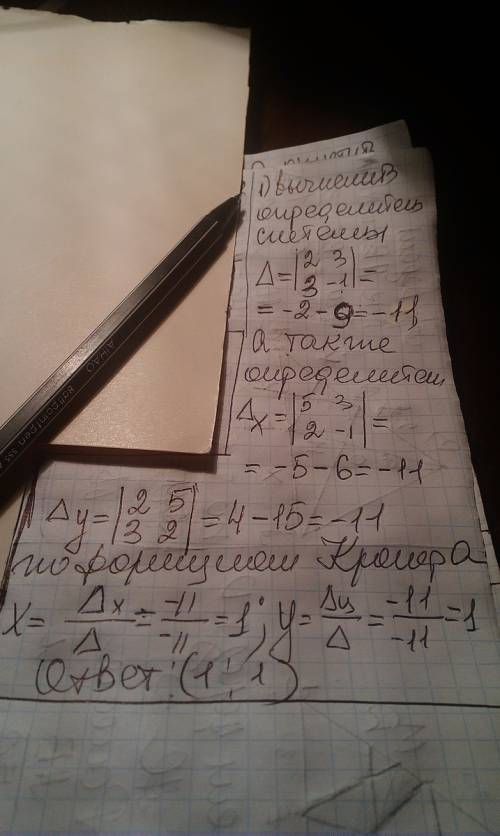 1) вычислив
определитель
системы
Δ = |2 3; 3 -1| =
= -2 - 9 = -11,
а также
определители
Δx = |5 3; 2 -1| =
= -5 - 6 = -11
Δy = |2 5; 3 2| = 4 - 15 = -11
по формулам Крамера
X = Δx/Δ = -11/-11 = 1; y = Δy/Δ = -11/-11 = 1
Ответ: (1; 1)
Ballpoint pen 555